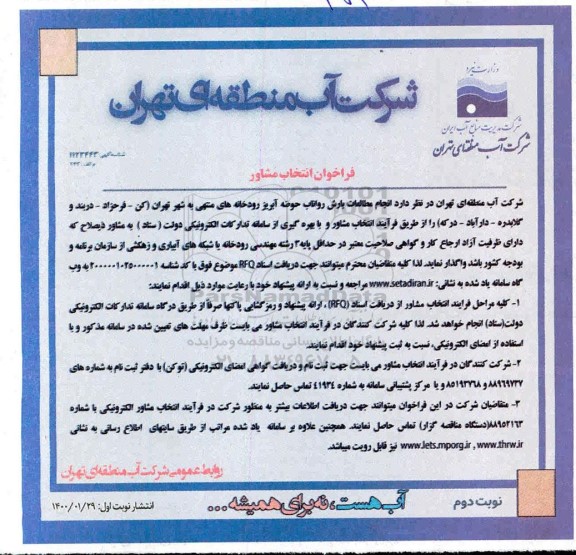 وزارت نیرو
شرکت مدیریت منابع آب ایران
شرکت آب منطقه‌ای تهران
شرکت آب منطقه‌ای تهران
فراخوان انتخاب مشاور
شرکت آب منطقه‌ای تهران در نظر دارد انجام مطالعات بارش رواناب حوضه آبریز رودخانه های منتهی به شهر تهران (کن - فرحزاد - دربند و
گلابدره - دارآباد - درکه) را از طریق فرآیند انتخاب مشاور و با بهره گیری از سامانه تدارکات الکترونیکی دولت ( ستاد ) به مشاور ذیصلاح که
دارای ظرفیت آزاد ارجاع کار و گواهی صلاحیت معتبر در حداقل پایه ۳ رشته مهندسی رودخانه یا شبکه های آبیاری و زهکشی از سازمان برنامه و
بودجه کشور باشد واگذار نماید. لذا کلیه متقاضیان محترم میتوانند جهت دریافت اسناد RFQ موضوع فوق با کد شناسه ۲۰۰۰۰۰۱۰۲۵۰۰۰۰۰۱ به وب
گاه سامانه یاد شده به نشانی: www.setadiran.ir مراجعه و نسبت به ارائه پیشنهاد خود با رعایت موارد ذیل اقدام نمایند:
۱- کلیه مراحل فرایند انتخاب مشاور از دریافت اسناد (RFQ)، ارائه پیشنهاد و رمزگشایی پاکتها صرفاً از طریق درگاه سامانه تدارکات الکترونیکی
دولت(ستاد) انجام خواهد شد. لذا کلیه شرکت کنندگان در فرآیند انتخاب مشاور می بایست ظرف مهلت های تعیین شده در سامانه مذکور و با
استفاده از امضای الکترونیکی، نسبت به ثبت پیشنهاد خود اقدام نمایند.
۲- شرکت کنندگان در فرآیند انتخاب مشاور می بایست جهت ثبت نام و دریافت گواهی امضای الکترونیکی (توکن) با دفتر ثبت نام به شماره های
۸۸۹۶۹۷۳۷ و ۸۵۱۹۳۷۶۸ و یا مرکز پشتیبانی سامانه به شماره ۴۱۹۳۴ تماس حاصل نمایند.
۳- متقاضیان شرکت در این فراخوان میتوانند جهت دریافت اطلاعات بیشتر به منظور شرکت در فرآیند انتخاب مشاور الکترونیکی با شماره
۸۸۹۵۲۱۶۳(دستگاه مناقصه گزار) تماس حاصل نمایند. همچنین علاوه بر سامانه یاد شده مراتب از طریق سایتهای اطلاع رسانی به نشانی
www.lets.mporg.ir , www.thrw.ir نیز قابل رویت میباشد.
روابط عمومی شرکت آب منطقه‌ای تهران
نوبت دوم
آب هست، نه برای همیشه ...
انتشار نوبت اول: ۱۴۰۰/۰۱/۲۹